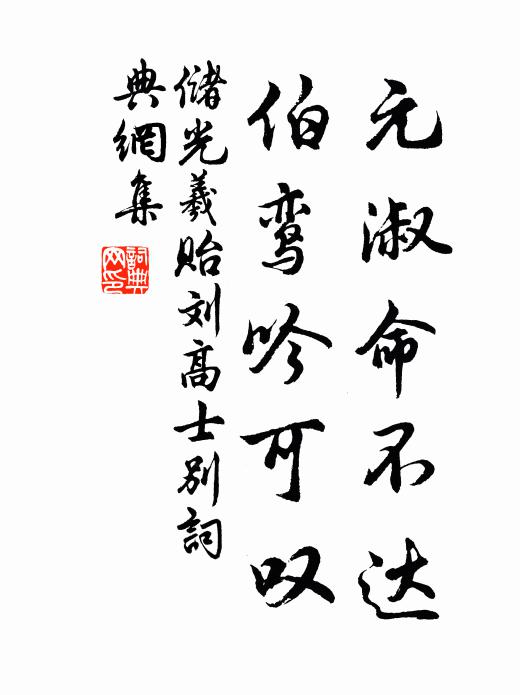 元淑命不达
伯鸾吟可叹
儲光羲贻刘高士别詞
典網集
詞典
网印